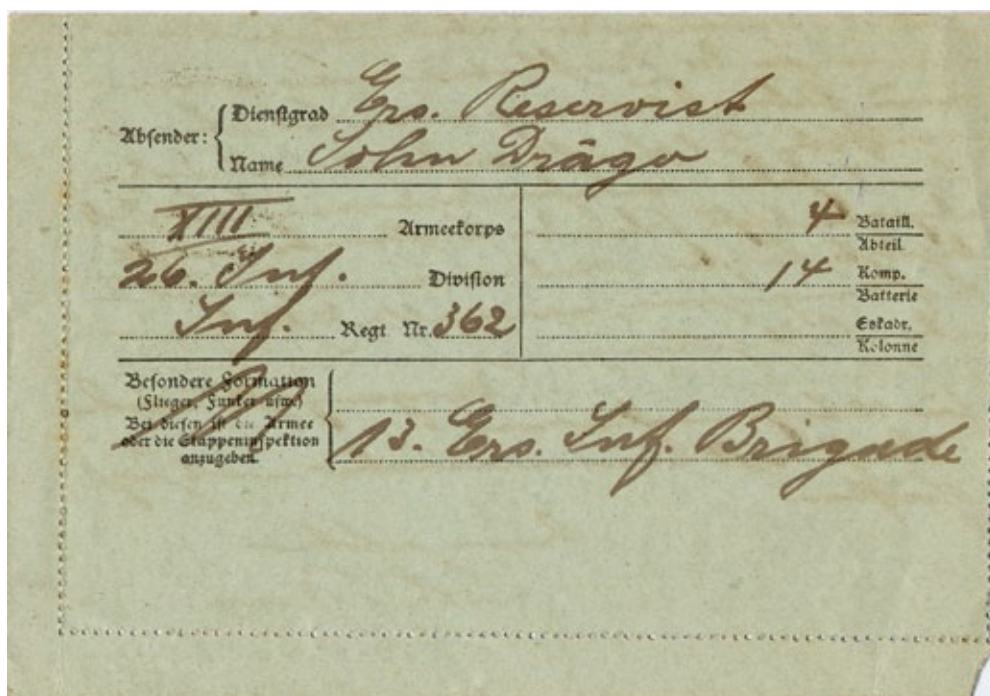 Absender: { Dienstgrad Ers. Reservist
Name John Drägo
XIII Armeekorps
26. Inf. Division
Inf. Regt Nr. 362
4 Bataill.
Abteil.
14 Komp.
Batterie
Eskadr.
Kolonne
Besondere Formation
(Flieger, Funker usw.)
Bei diesen ist die Armee
oder die Etappeninspektion
anzugeben.
13. Ers. Inf. Brigade